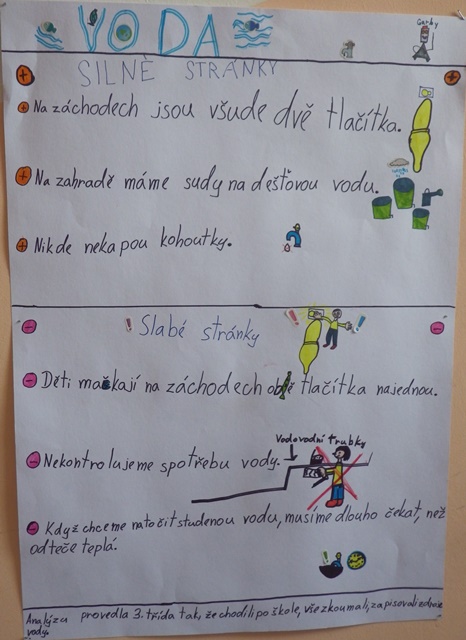 VODA
SILNÉ STRÁNKY
Na záchodech jsou všude dvě tlačítka.
Na zahradě máme sudy na dešťovou vodu.
Nikde nekapou kohoutky.
Slabé stránky
Děti mačkají na záchodech obě tlačítka najednou.
Vodovodní trubky
Nekontrolujeme spotřebu vody.
Když chceme natočit studenou vodu, musíme dlouho čekat, než
odteče teplá.
Analýzu provedla 3. třída tak, že chodili po škole, vše zkoumali, zapisovali zdroje
vody.